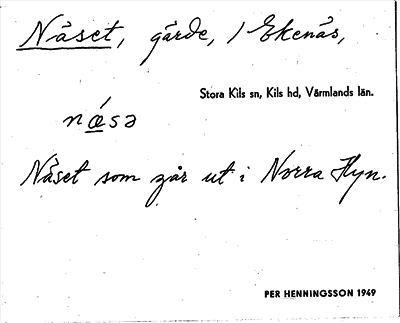 Näset, gärde, / Ekenäs,
Stora Kils sn, Kils hd, Värmlands län.
nǽsə
Näset som går ut i Norra Hyn.
PER HENNINGSSON 1949